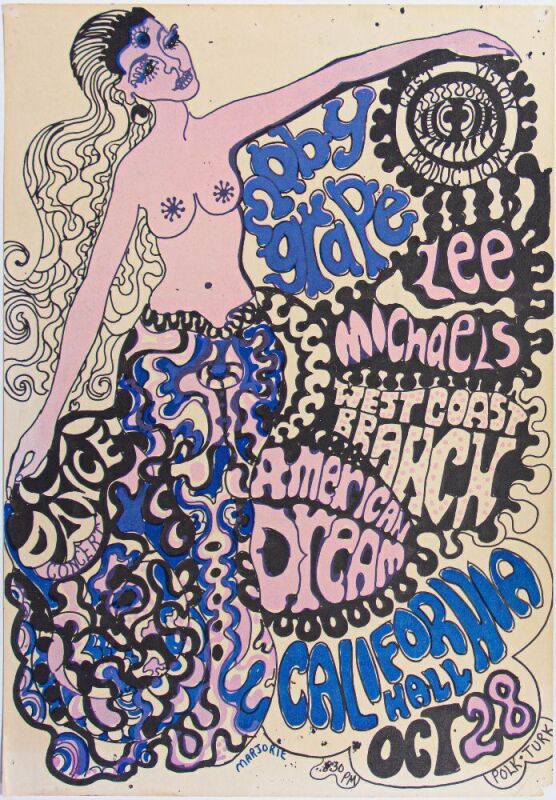 WEST VISION
PRODUCTIONS
moby
grape
Lee
MICHAELS
WEST COAST
BRANCH
AMERICAN
DREAM
DANCE
CONCERT
CALIFORNIA
HALL
OCT 28
MARJORIE
8:30
PM
POLK · TURK